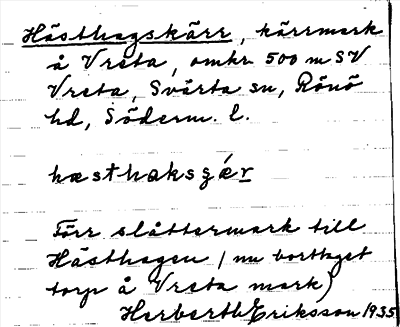 Hästhagskärr, kärrmark
å Vreta, omkr 500 m SV
Vreta, Svärta sn, Rönö
hd, Söderm. l.
hæsthaksçǽr
Förr slåttermark till
Hästhagen (nu borttaget
torp å Vreta mark)
Herberth Eriksson 1935